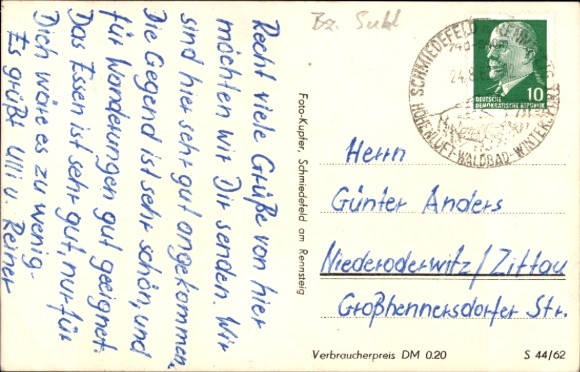 Recht viele Grüße von hier
möchten wir Dir senden. Wir
sind hier sehr gut angekommen.
Die Gegend ist sehr schön, und
für Wanderungen gut geeignet.
Das Essen ist sehr gut, nur für
Dich wäre es zu wenig.
Es grüßt Ulli u. Reiner
Foto-Kupfer, Schmiedefeld am Rennsteig
Bz. Suhl
SCHMIEDEFELD
24.8.
HÖHENLUFT-WALDBAD-WINTERSPORT
DEUTSCHE
DEMOKRATISCHE REPUBLIK
10
Herrn
Günter Anders
Niederoderwitz/Zittau
Großhennersdorfer Str.
Verbraucherpreis DM 0.20
S 44/62